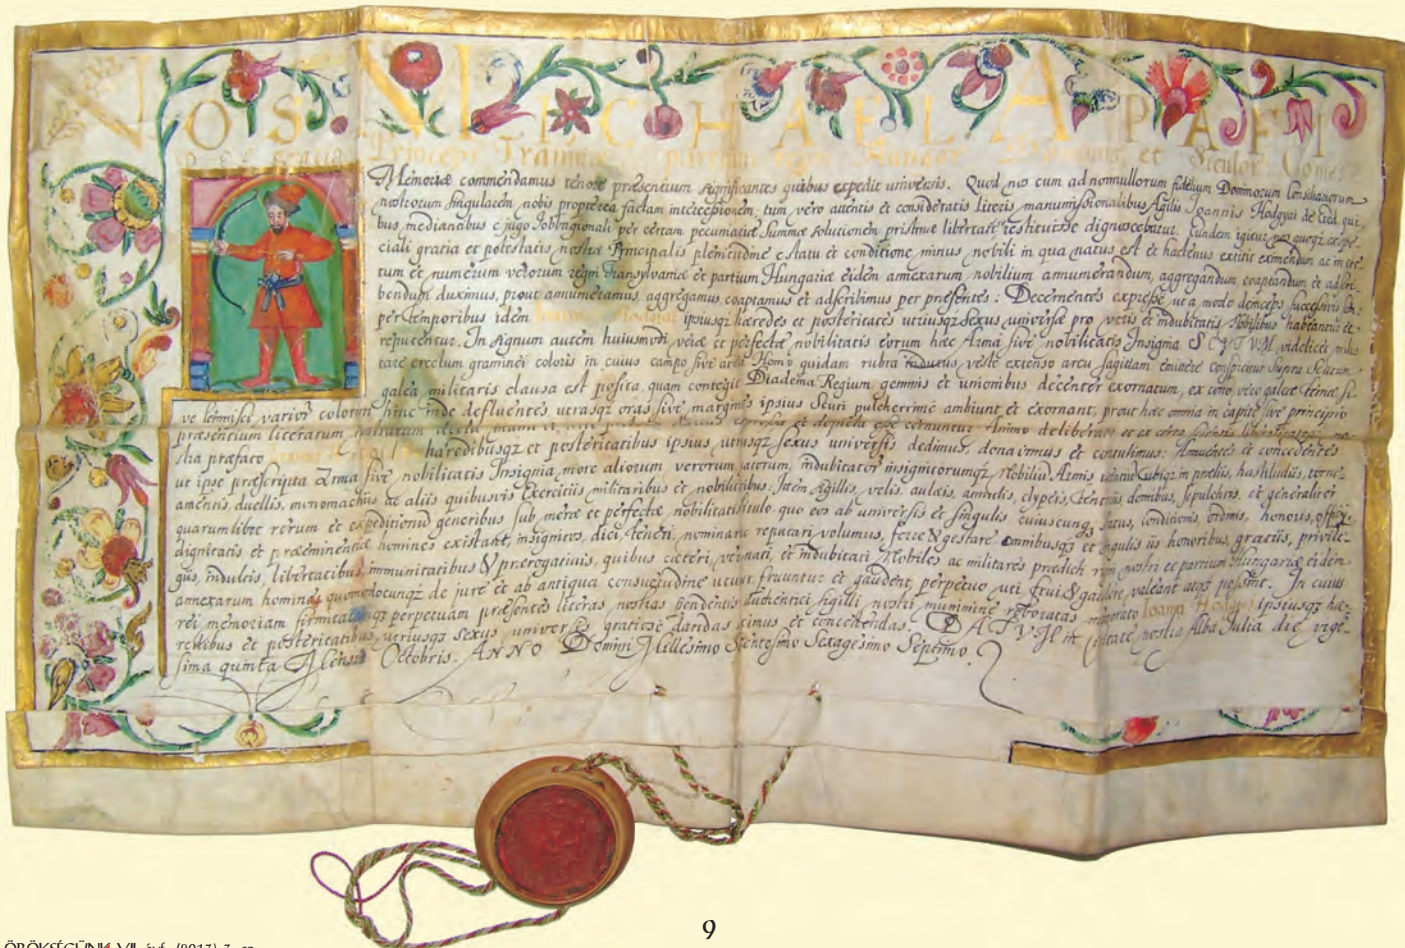 NOS MICHAEL APAFI
Dei gratia Princeps Tranniæ partium regni Hungar Dominus et Siculor Comes
Memoriæ commendamus tenore præsentium significantes quibus expedit universis. Quod nos cum ad nonnullorum fidelium Dominorum Consiliariorum
nostrorum singularem nobis propterea factam intercessionem, tum vero attentis et consideratis literis manumissionalibus Agilis Joannis Hodgyai de ead, qui
bus mediantibus e jugo Iobbagionali per certam pecuniariæ Summæ solutionem pristinæ libertati restituisse dignoscebatur. Eundem igitur
ciali gratia et potestatis nostræ Principalis plenitudine e statu et conditione minus nobili in qua natus est et hactenus extitit eximendum ac in cœ
tum et numerum verorum regni Transylvaniæ et partium Hungariæ eidem annexarum nobilium annumerandum, aggregandum, cooptandum et adscri
bendum duximus, prout annumeramus, aggregamus, cooptamus et adscribimus per præsentes: Decernentes expresse ut a modo deinceps successivis sem
per temporibus idem Joannes Hodgyai ipsiusq; hæredes et posteritates utriusq; sexus universæ pro veris et indubitatis Nobilibus habeantur et
reputentur. In signum autem huiusmodi veræ et perfectæ nobilitatis eorum hæc Arma sive nobilitatis Insignia SCVTVM videlicet mili
tare erectum graminei coloris in cuius campo sive area Homo quidam rubra indutus veste extenso arcu sagittam emittere conspicitur Supra Scutum
galea militaris clausa est posita, quam contegit Diadema Regium gemmis et unionibus decenter exornatum, ex cono vero galeæ tæniæ si
ve lemnisci varior colorum hinc inde defluentes, utrasq; oras sive margines ipsius Scuti pulcherrime ambiunt et exornant, prout hæc omnia in capite sive principio
præsentium literarum esse cernuntur. Animo deliberato et ex certa scientia
stra præfato hæredibusq; et posteritatibus ipsius, utriusq; sexus universis dedimus, donavimus et contulimus: Annuentes et concedentes
ut ipse præscripta Arma sive nobilitatis Insignia, more aliorum verorum indubitator insignitorumq; Nobiliū Armis utentiū ubiq; in præliis, hastiludiis, torne
amentis, duellis, monomachiis ac aliis quibusvis Exercitiis militaribus et nobilibus. Item sigillis, velis, aulæis, annulis, clypeis, tentoriis, domibus, sepulchris, et generaliter
quarumlibet rerum et expeditionū generibus sub meræ et perfectæ nobilitatis titulo, quo eos ab universis et singulis cuiuscunq; status, conditionis, ordinis, honoris,
dignitatis et præeminentiæ homines existant, insignitos, dici, teneri, nominari reputari volumus, ferre & gestare omnibusq; et singulis iis honoribus, gratiis, privile
giis, indultis, libertatibus, immunitatibus & prærogativis, quibus cæteri, veri, nati, et indubitati Nobiles ac militares prædicti regni nostri et partium Hungariæ eidem
annexarum homines quomodocunq; de jure et ab antiqua consuetudine utuntur, fruuntur et gaudent, perpetuo uti, frui & gaudere valeant atq; possint. In cuius
rei memoriam firmitatemq; perpetuam præsentes literas nostras pendentis authentici sigilli nostri munimine roboratas memorato Ioanni Hodgyai ipsiusq; hæ-
redibus et posteritatibus utriusq; sexus universis gratiose dandas duximus et concedendas. DATVM in Civitate nostra Alba Julia die vige-
sima quinta Mensis Octobris. ANNO Domini Millesimo Sexcentesimo Sexagesimo Septimo.
9
ÖRÖKSÉGÜNK VII. évf. (2013) 3. sz.